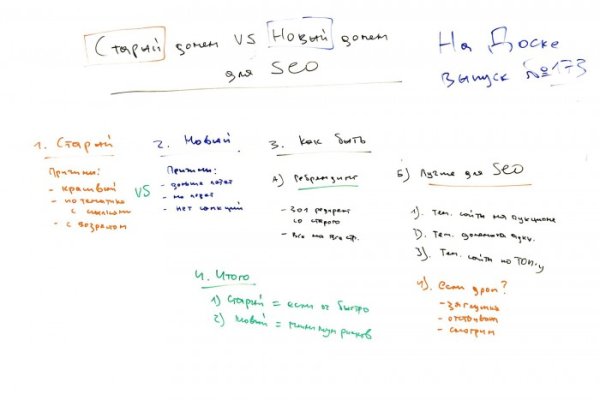 Старый домен VS Новый домен
для SEO
На Доске
Выпуск №173
1. Старый
Причины:
- красивый
- по тематике
с ссылками
- с возрастом
VS
2. Новый
Причины:
- дольше
- нет санкций
3. Как быть
А) Ребрендинг
- 301 редирект
со старого
- Все на все стр.
Б) Лучше для SEO
1). Тем. сайты на аукционе
2). Тем. домена аукц.
3). Тем. сайты по ТОП-у
4). Если дроп?
- заглушка
- отстойник
- смотрим
4. Итого
1) Старый = если оч быстро
2) Новый = минимум рисков